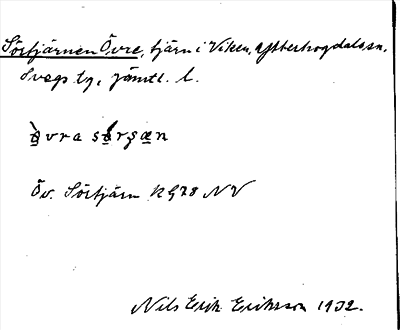 Sörtjärnen Övre, tjärn i Viken, Ytterhogdals sn,
Svegs tg, Jämtl. l.
Öv. Sörtjärn NV
Nils Erik Eriksson 1932.